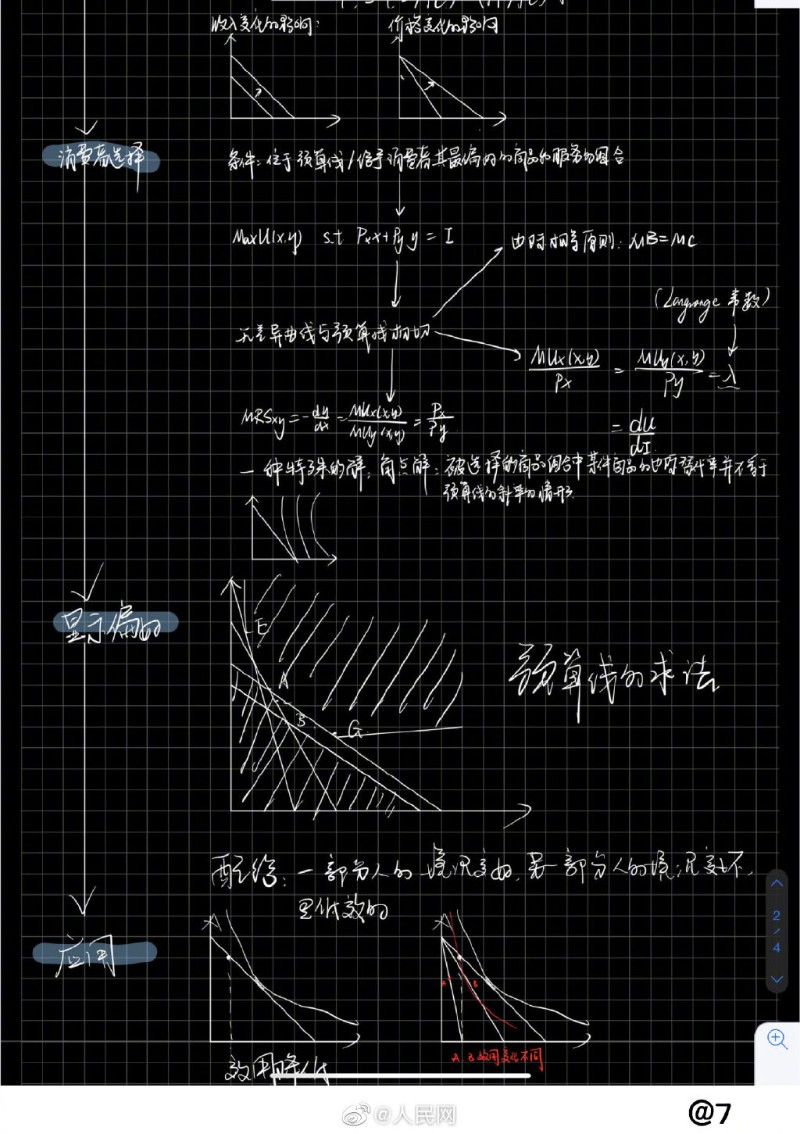 收入变化的影响：
价格变化的影响
消费者选择
条件：位于预算线/给予消费者其最偏好的商品和服务的组合
MaxU(x,y) s.t Pxx+Pyy=I
边际相等原则：MB=MC
(Langrange 常数)
无差异曲线与预算线相切
MUx(x,y)/Px = MUy(x,y)/Py = λ
= du/dI
MRSxy=-dy/dx=MUx(x,y)/MUy(x,y)=Px/Py
一种特殊的解：角点解：被选择的商品组合中某件商品的边际替代率并不等于
预算线的斜率的情形
显示偏好
E
A
B
G
预算线的求法
配给：一部分人的境况变好，另一部分人的境况变坏，
是低效的
应用
A
B
A、B效用变化不同
效用降低
2
/
4
@人民网
@7